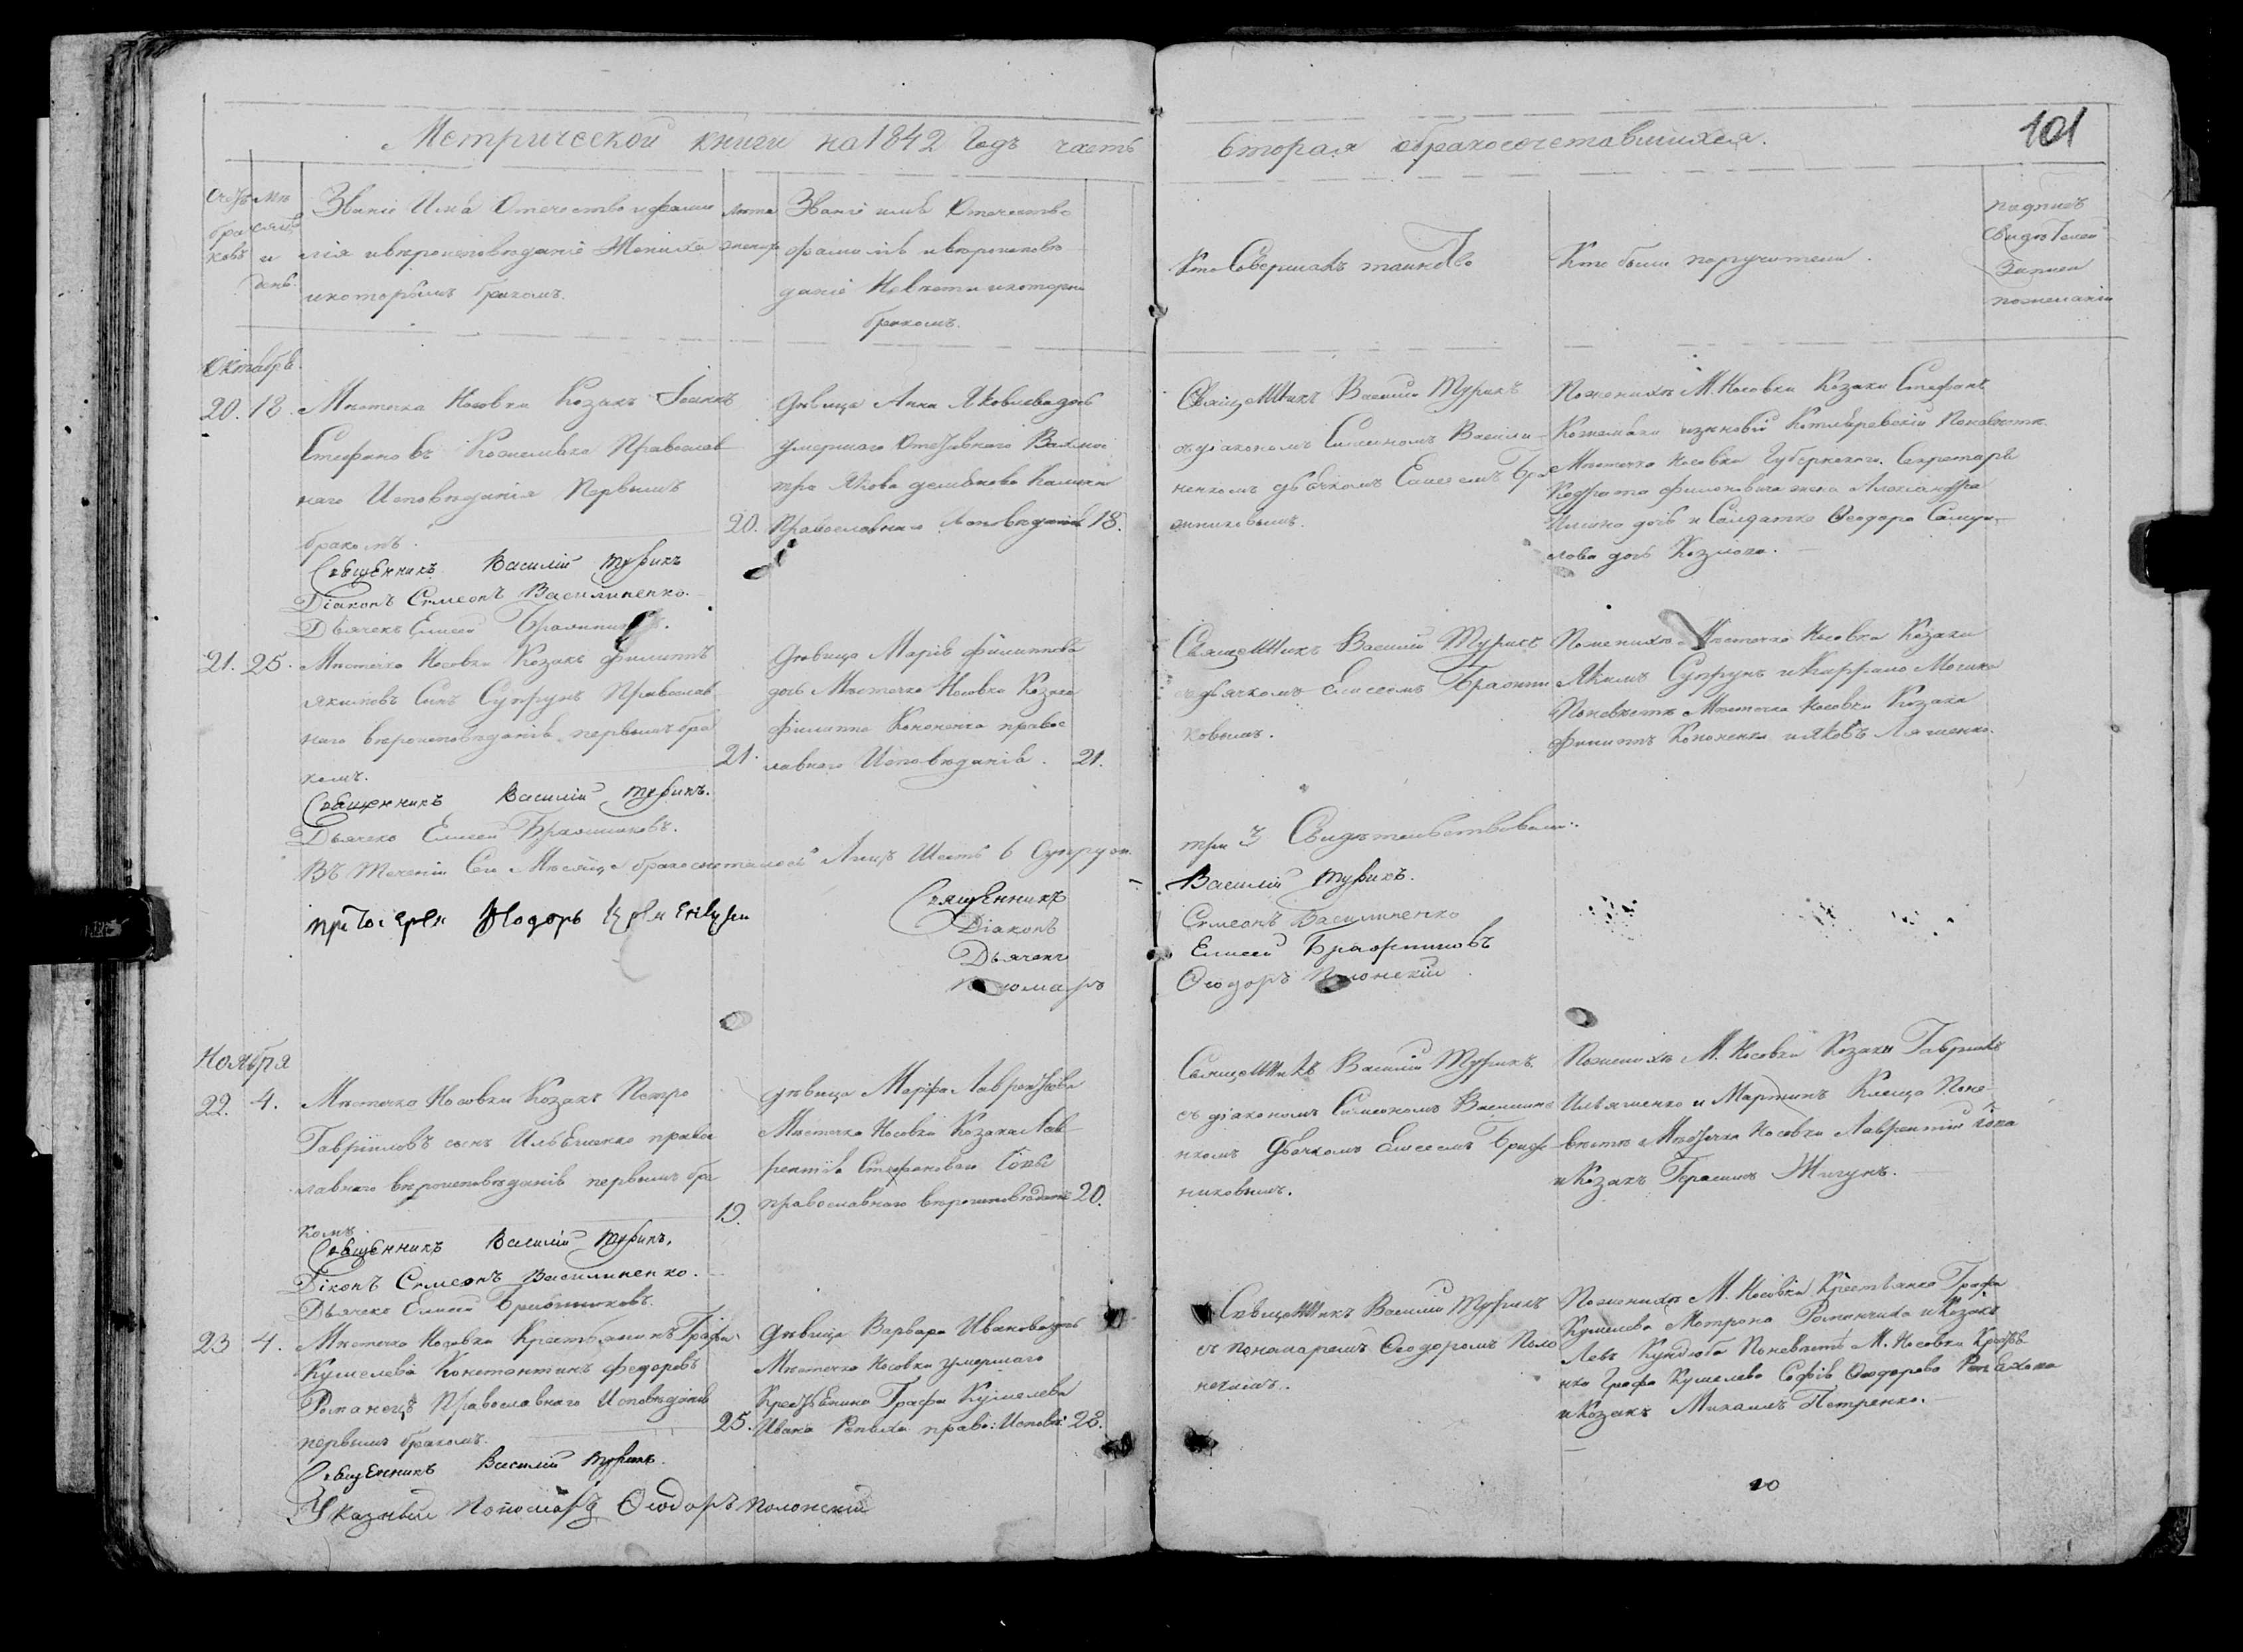 Метрической книги на 1842 Годъ часть
вторая обракосочетавшихся.
101
Счетъ браковъ
Мѣсяцъ и день.
Званіе Имя Отечество и фамилія и вѣроисповѣданіе Жениха
и которымъ бракомъ.
лѣта жениха
Званіе имя Отечество
фамилія и вѣроисповѣ
даніе Невѣсты и которым
бракомъ.
Кто Совершалъ таинство
Кто были поручители.
подписъ
Свидѣтелей
Записи
по желанію
Октября
20. 18. Мѣстечка Носовки Козакъ Іоаннъ
Стефановъ Кожемяка Православ
наго Исповѣданія Первымъ
бракомъ. 20.
Священникъ Василій Турикъ
Діаконъ Симеонъ Василиненко.
Дьячекъ Елисей
Дѣвица Анна Яковлева дочь
умершаго Отставнаго Вахмис
тра Якова
Православнаго Исповѣданія 18.
Священникъ Василій Турикъ
съ діакономъ Симеономъ Васили
ненкомъ дьячкомъ Елисеемъ
По женихѣ М. Носовки Козаки Стефанъ
Кожемяка По невѣстѣ
Мѣстечка Носовки Губернскаго Секретаря
Кодрата Филоновича жена Александра
дочь и Солдатка Ѳеодора Самуи
лова дочь Козлова.
21. 25. Мѣстечка Носовки Козакъ Филиппъ
Якимовъ Сынъ Супрунъ Православ
наго вѣроисповѣданія первымъ бра
комъ. 21.
Священникъ Василій Турикъ.
Дьячекъ Елисей
Дѣвица Марія Филиппова
дочь Мѣстечка Носовки Козака
Филиппа Кононенка правос
лавнаго Исповѣданія. 21.
Священникъ Василій Турикъ
съ дьячкомъ Елисеемъ
ковымъ.
По женихѣ Мѣстечка Носовки Козаки
Якимъ Супрунъ и
По невѣстѣ Мѣстечка Носовки Козаки
Филиппъ Кононенко и Яковъ Ляшенко.
Въ теченіи Сего Мѣсяца бракосочеталось Лицъ Шесть 6 Супруж.
три 3 Свидѣтельствовали:
Протоіерей Ѳеодоръ
Священникъ Василій Турикъ.
Діаконъ Симеонъ Василиненко
Дьячекъ Елисей
Пономарь Ѳеодоръ Полонскій
Ноября
22. 4. Мѣстечка Носовки Козакъ Петро
Гавріиловъ сынъ Ильяшенко правос
лавнаго вѣроисповѣданія первымъ бра
комъ 19.
Священникъ Василій Турикъ.
Діконъ Симеонъ Василиненко.
Дьячекъ Елисей
дѣвица Марфа Лаврентіева
Мѣстечка Носовки Козака Лав
рентія Стефановаго
православнаго вѣроисповѣданія 20.
Священникъ Василій Турикъ.
съ діакономъ Симеономъ Василине
нкомъ Дьячкомъ Елисеемъ
никовымъ.
По женихѣ М. Носовки Козаки Гавріилъ
Ильяшенко и Мартинъ По не
вѣстѣ Мѣстечка Носовки Лаврентій
и Козакъ Герасимъ Жигунъ.
23 4. Мѣстечка Носовки Крестьянинъ Графа
Кушелева Константинъ Федоровъ
Романецъ Православнаго Исповѣданія
первымъ бракомъ. 25.
Священникъ Василій Турикъ.
Указный Пономарь Ѳеодоръ Полонскій
Дѣвица Варвара Иванова дочь
Мѣстечка Носовки умершаго
Крестьянина Графа Кушелева
Ивана Репьяха право: Исповѣ: 23.
Священникъ Василій Турикъ
съ пономаремъ Ѳеодоромъ Поло
нскимъ.
По женихѣ М. Носовки Крестьянка Графа
Кушелева Мотрона Романчиха и Козакъ
Левъ Кундюба По невѣстѣ М. Носовки Кресть
нка Графа Кушелева Софія Ѳеодорова
и Козакъ Михаилъ Петренко.